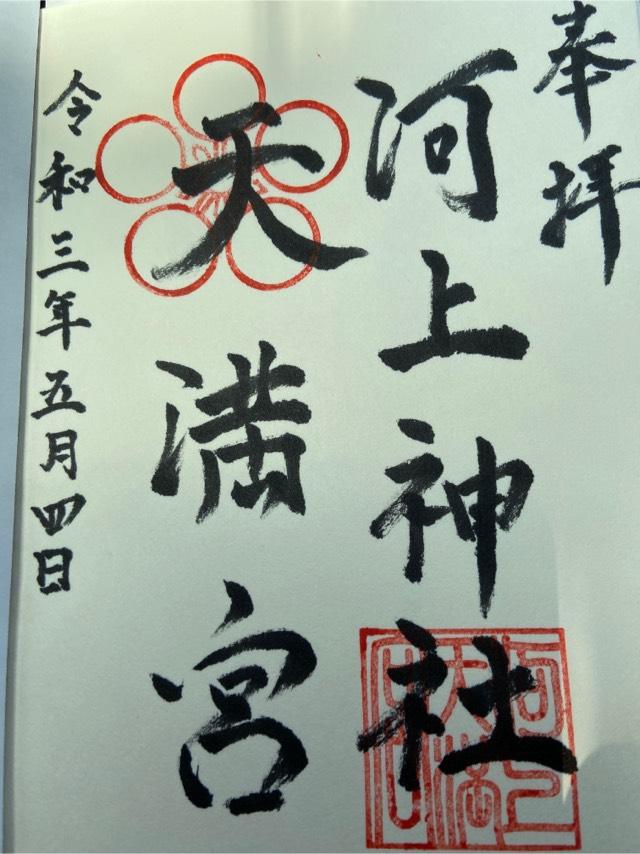 奉拝
河上神社
天満宮
令和三年五月四日